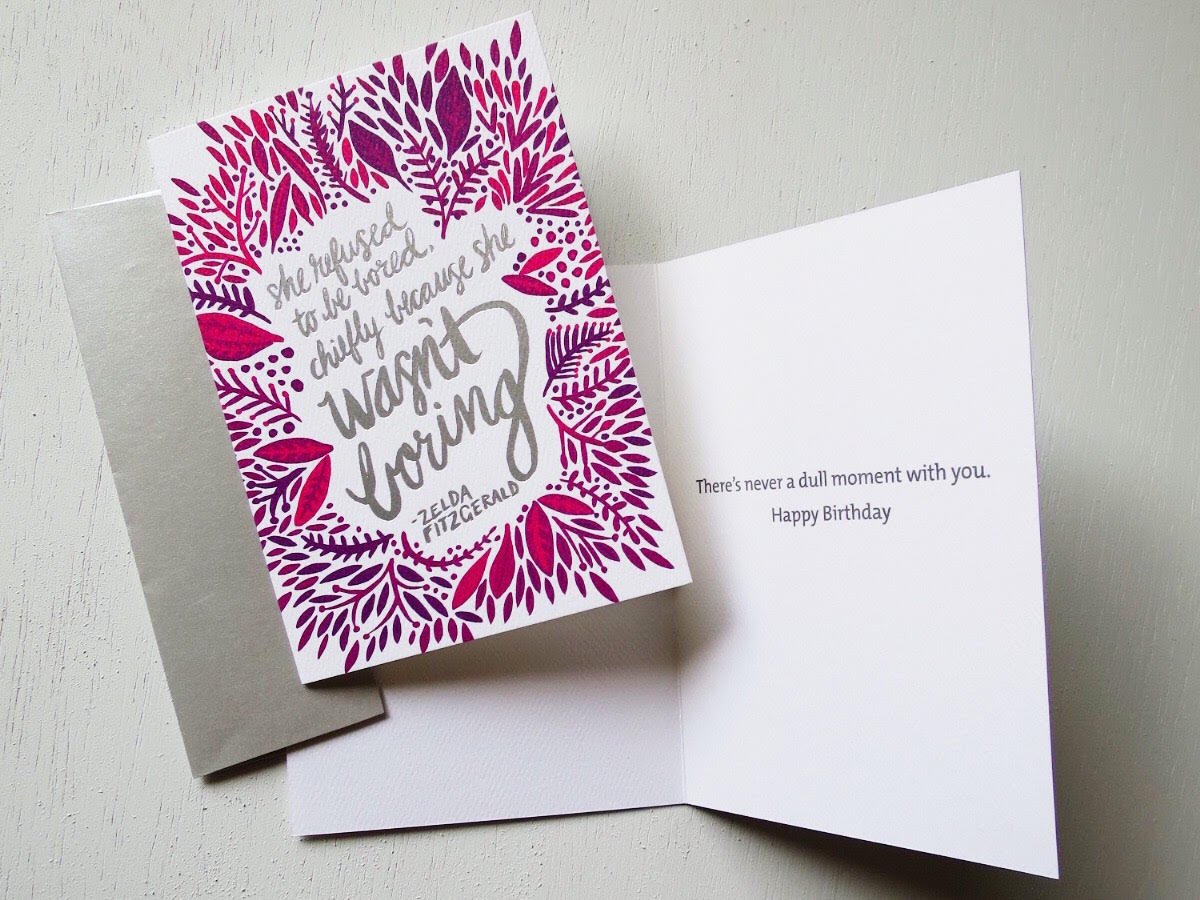 she refused
to be bored,
chiefly because she
wasn't
boring
-ZELDA
FITZGERALD
There's never a dull moment with you.
Happy Birthday